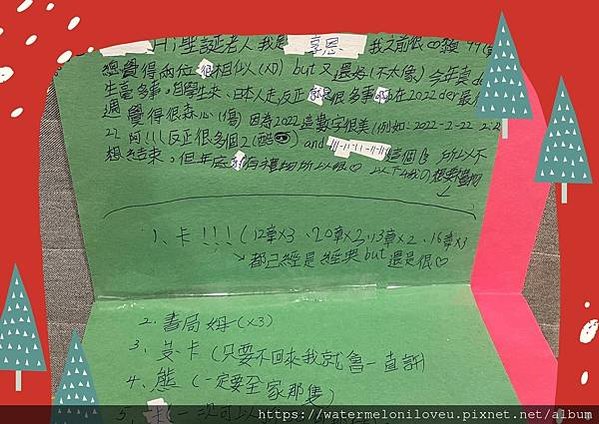 Hi 聖誕老人 我是 享恩 我之前很
總覺得兩位很相似(XD) but 又還好(不太像) 今年喜der
生蠻多事,陌學生來、日本人走,反正就是很多事 在2022 der 最
週 覺得很森心(傷) 因為2022這數字很美(例如:2022-2-22 2:2
22 阿!!!反正很多個2(酷) and 這個 所以不
想結束,但年底有禮物所以很♡ 以下4我の想要禮物
1、卡!!!(12章×3、20章×2、13章×2、16章×3
↳都已經是經典but還是很♡
2、書局姆(×3)
3、卡(只要不回來我就會一直許
4、熊(一定要全家那隻)
5、卡(一次可以
https://watermeloniloveu.pixnet.net/album